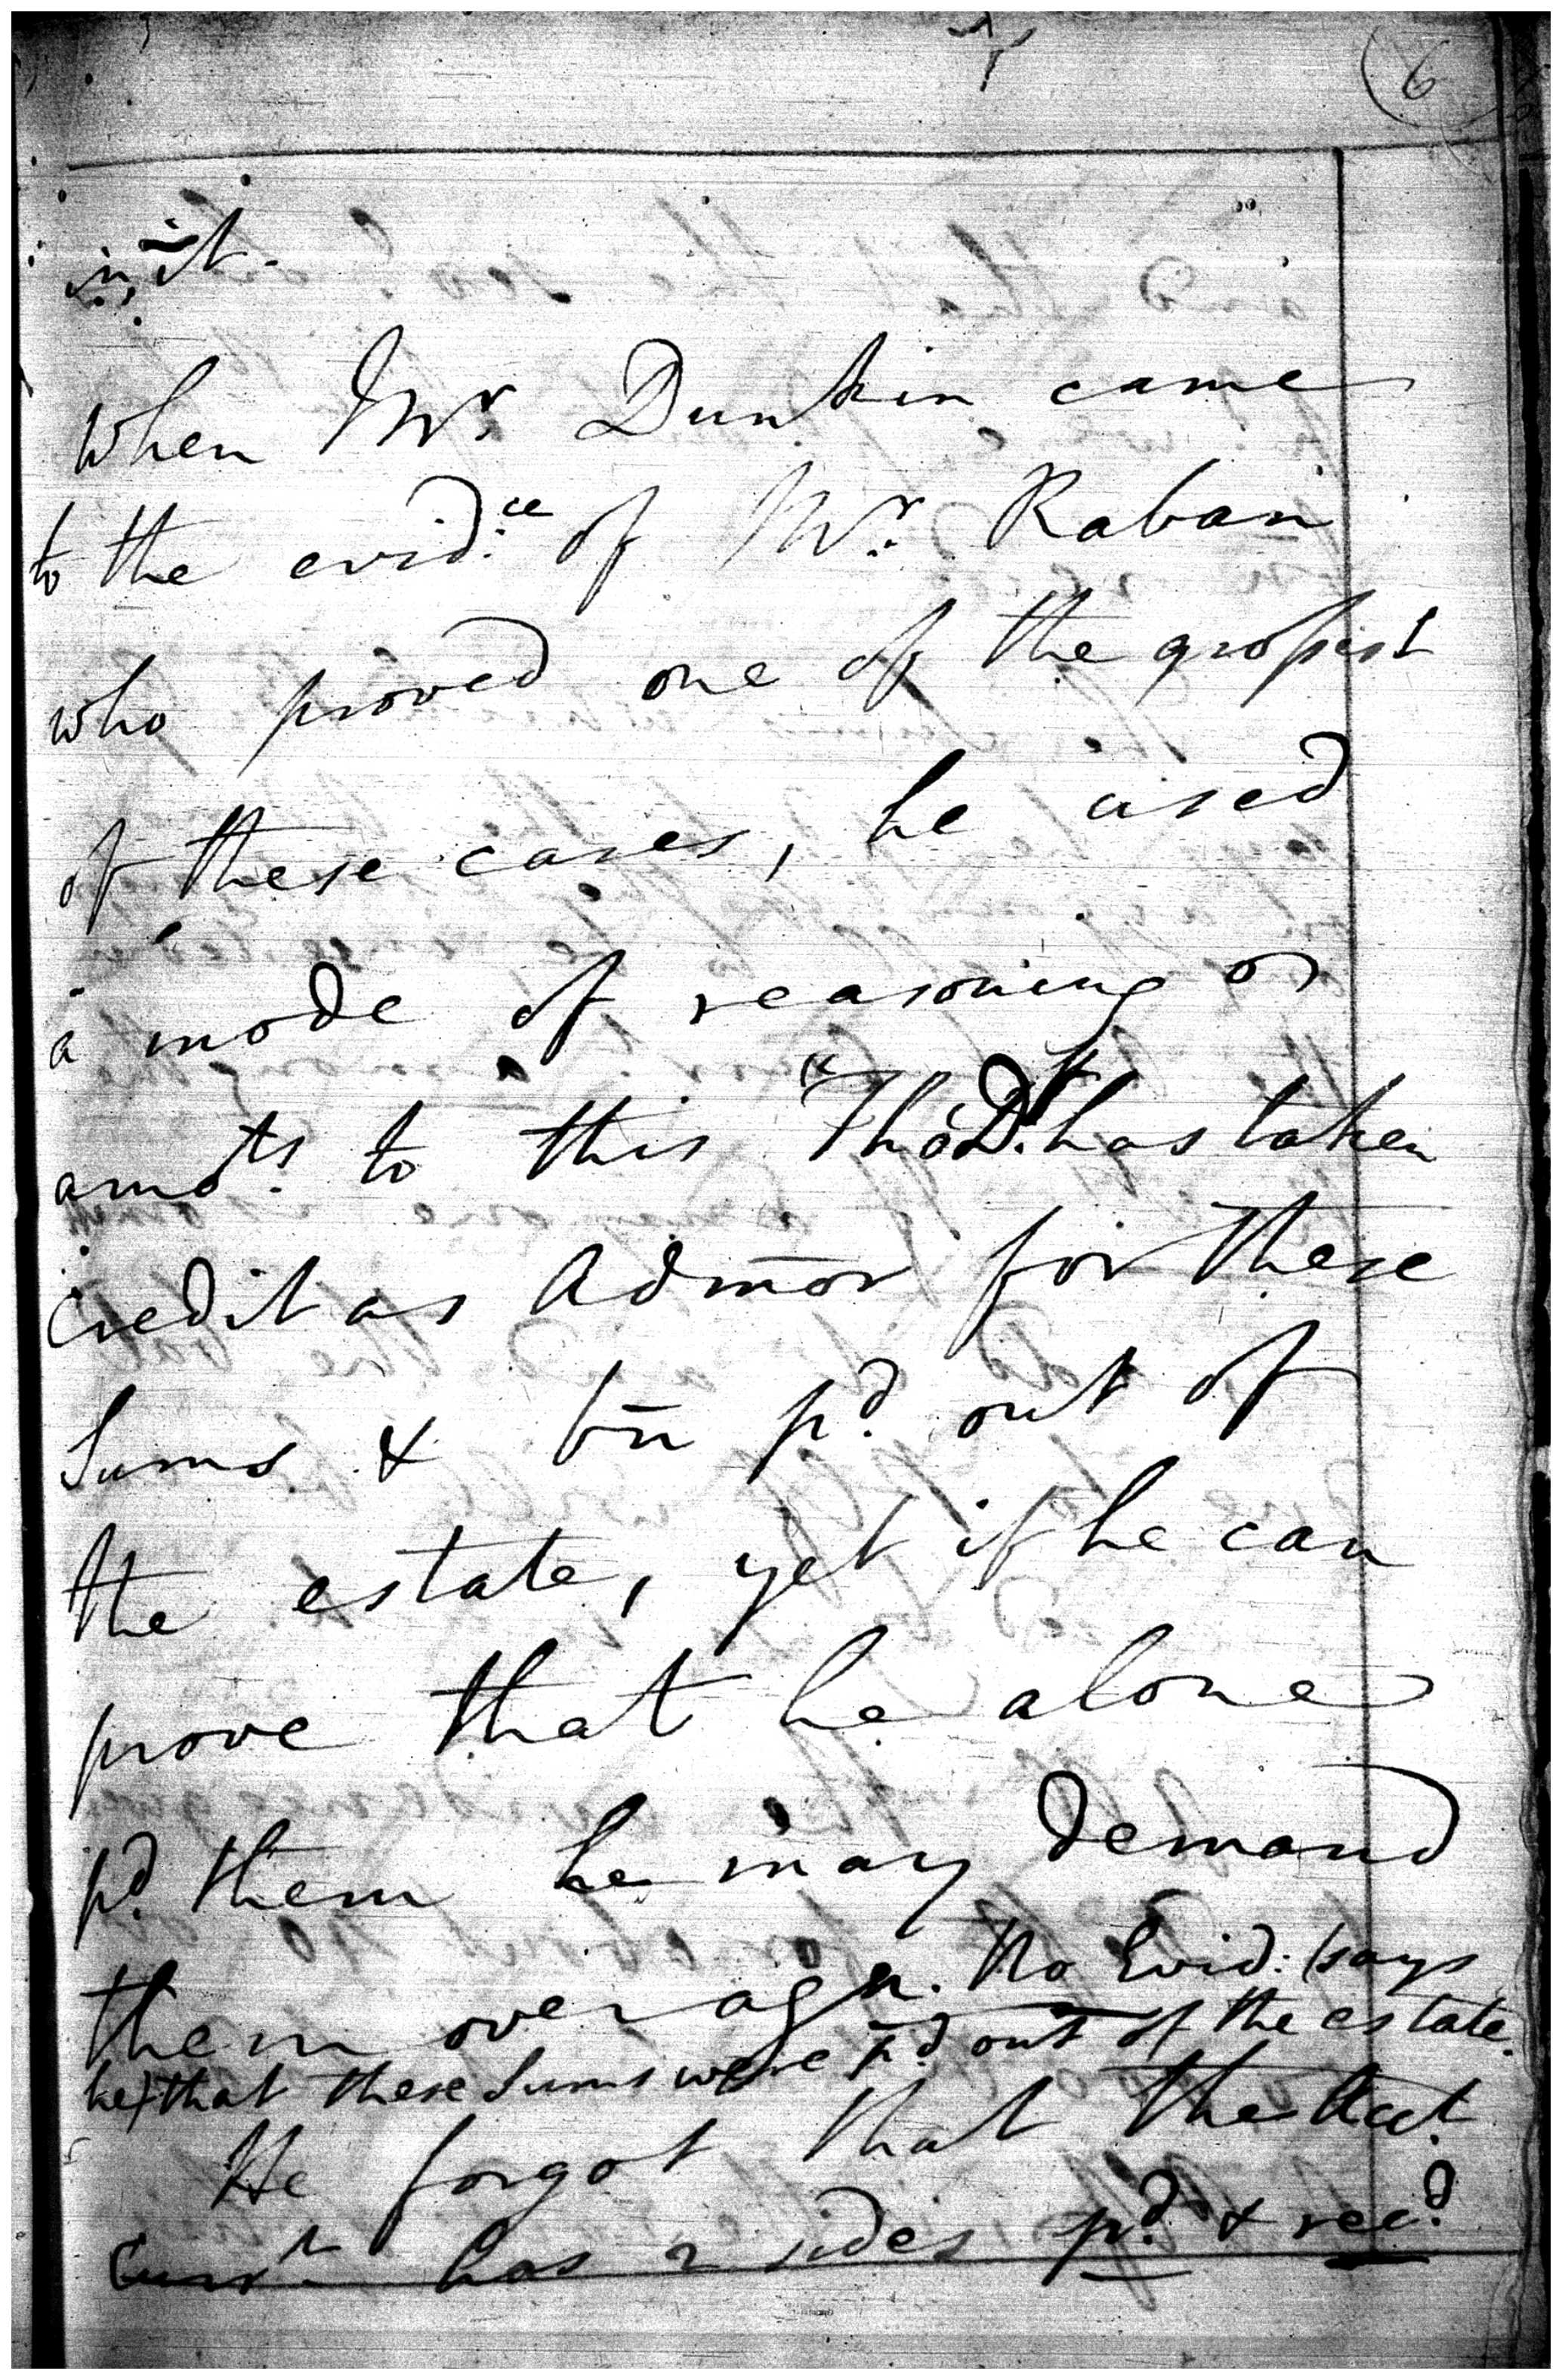 6
in it.
When Mr. Dunkin came
to the evid:ce of Mr. Raban
who proved one of the grossest
of these cases, he used
a mode of reasoning or
amots. to this "Tho' Dt. has taken
credit as Admor for these
Sums & bn pd. out of
the estate, yet if he can
prove that he alone
pd. them he may demand
them over agn. No Evid: (says
he) that these Sums were pd out of the estate.
He forgot that the Acct.
Curr.t has 2 sides pd. & recd.